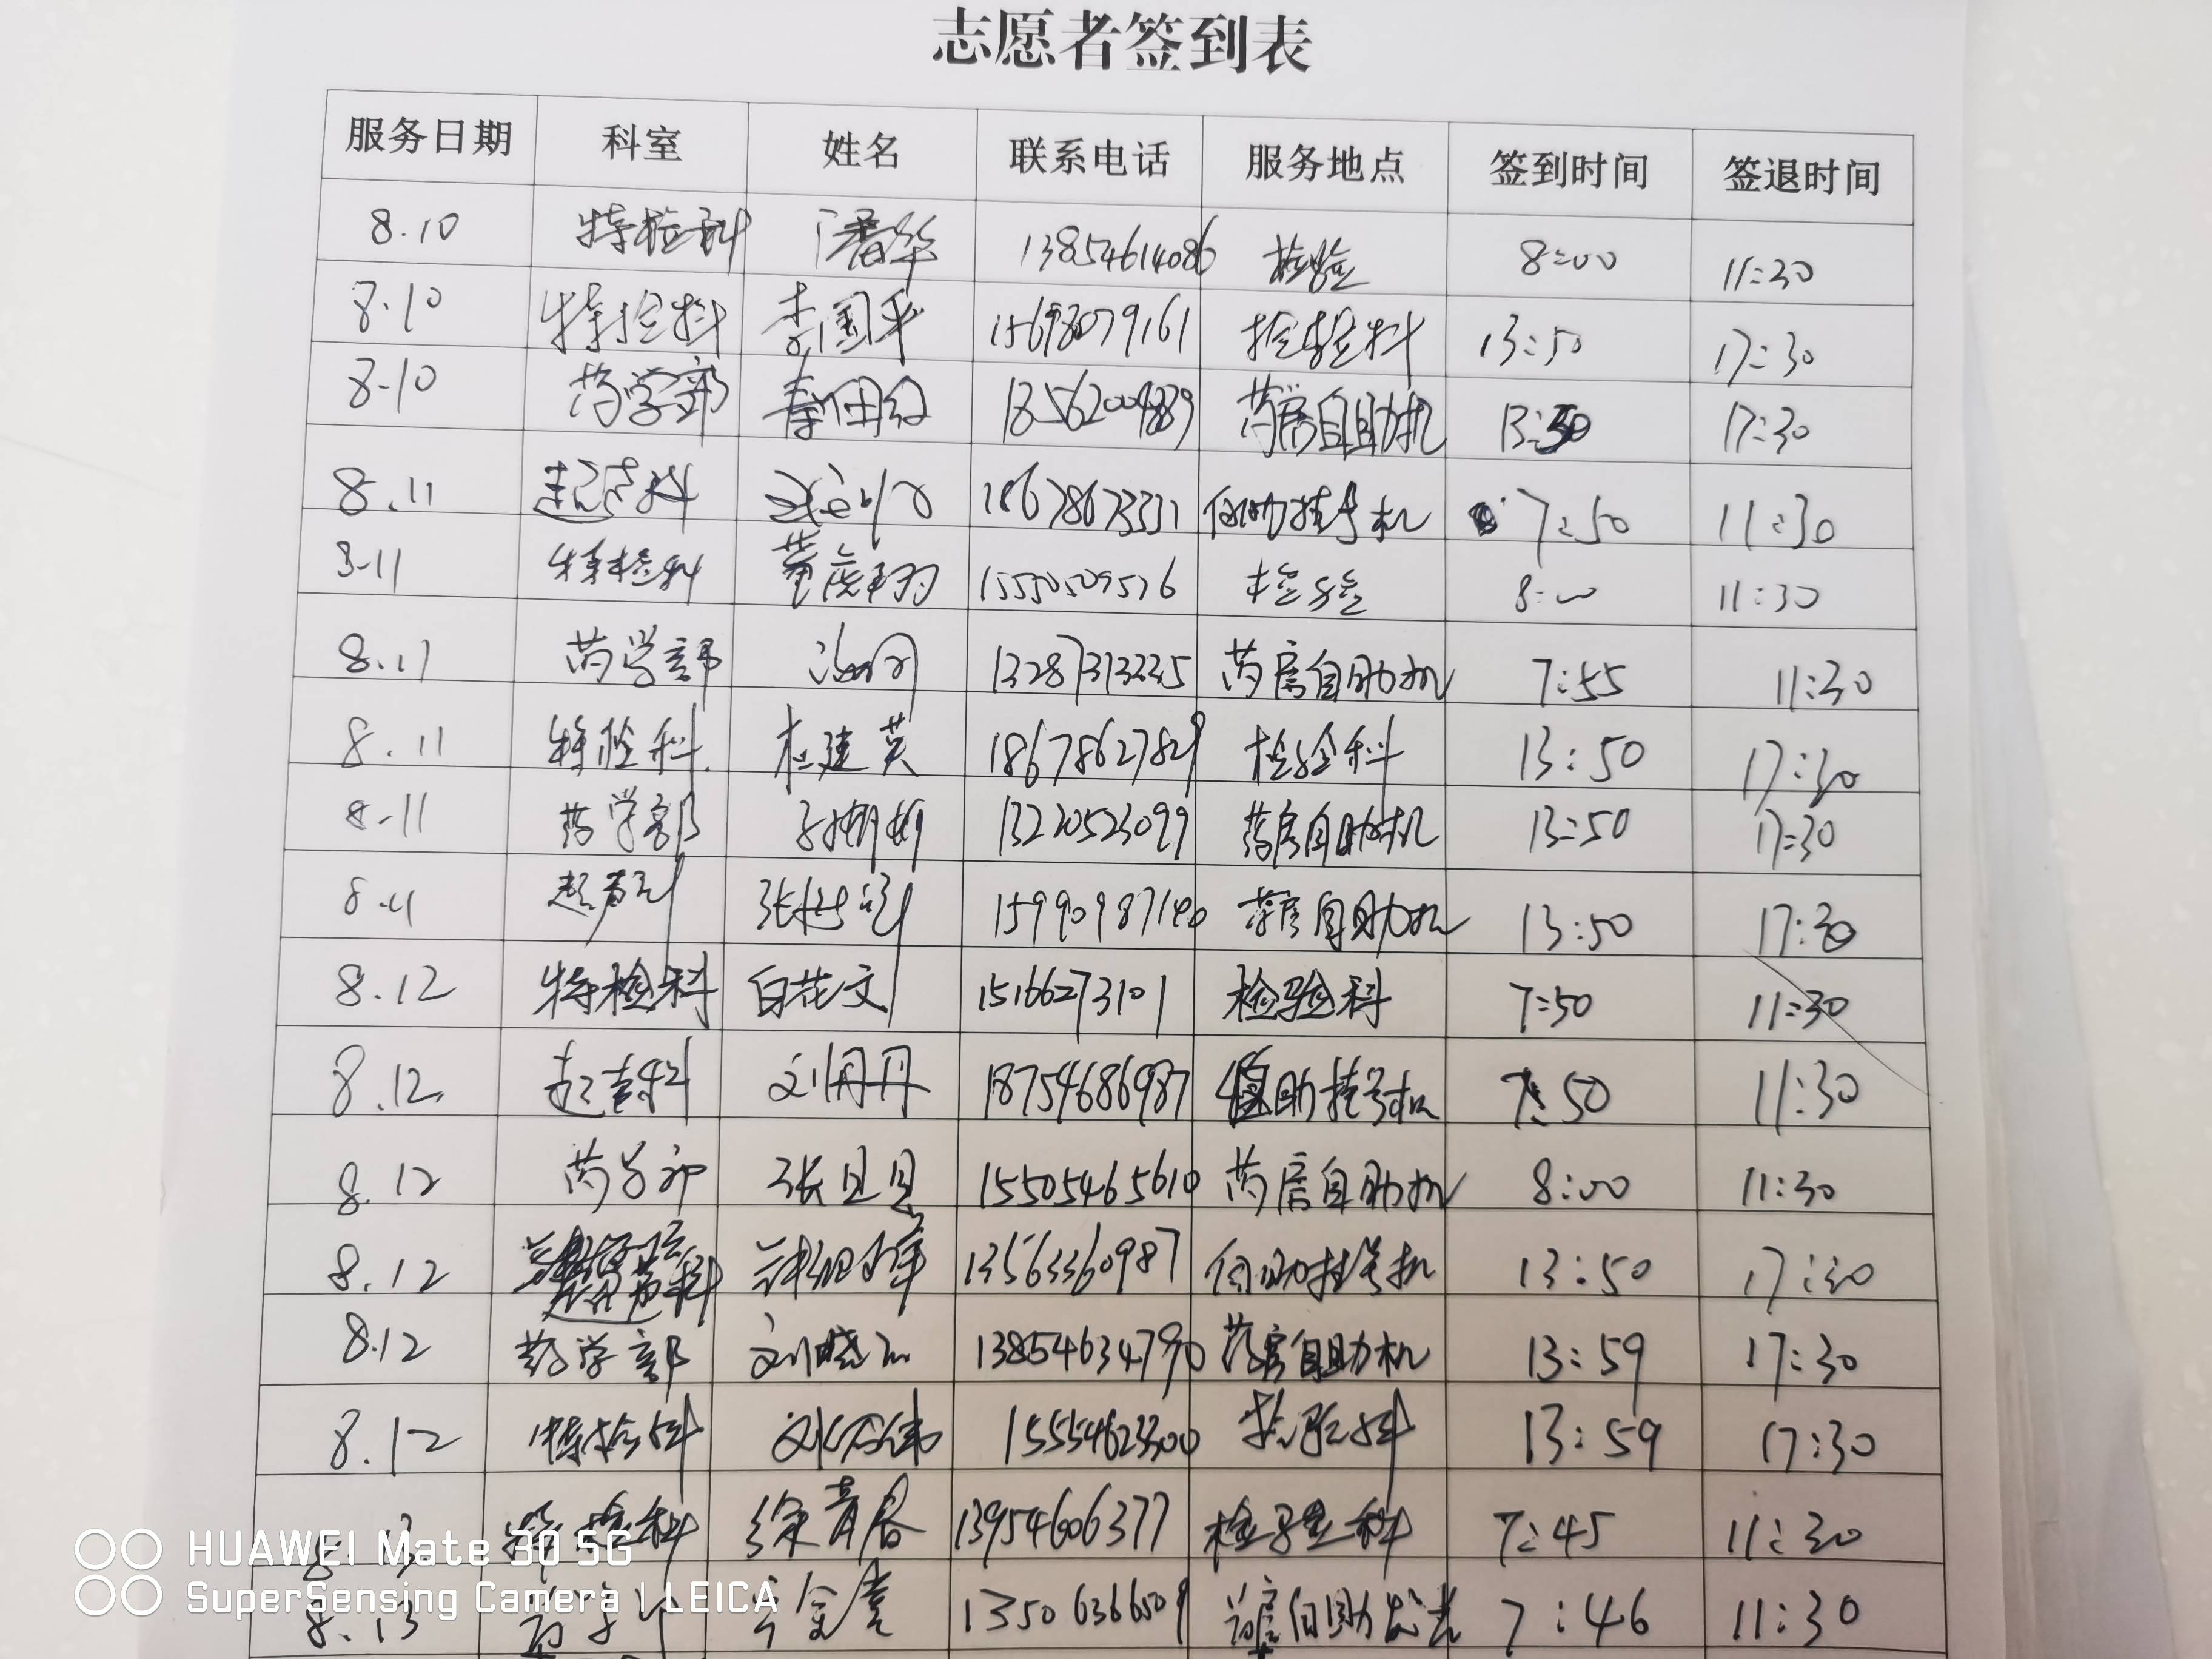 志愿者签到表
服务日期 科室 姓名 联系电话 服务地点 签到时间 签退时间
8.10 特检科 潘华 13854614086 检验 8:00 11:30
8.10 特检科 李国平 15698079161 检验科 13:50 17:30
8-10 药学部 13:50 17:30 药房自助机
8.11 超声科 18678673331 自助挂号机 7:50 11:30
8-11 特检科 检验 8:00 11:30
8.11 药学部 13287313235 药房自助机 7:55 11:30
8.11 特检科 杜建英 18678627829 检验科 13:50 17:30
8-11 药学部 13220523099 药房自助机 13:50 17:30
8.11 超声科 15990987140 药房自助机 13:50 17:30
8.12 特检科 白花文 15166273101 检验科 7:50 11:30
8.12 超声科 刘丹丹 18754686987 自助挂号机 7:50 11:30
8.12 药学部 15505465610 药房自助机 8:00 11:30
8.12 13563360987 自助挂号机 13:50 17:30
8.12 药学部 13854634790 药房自助机 13:59 17:30
8.12 特检科 15554623300 检验科 13:59 17:30
特检科 徐青春 13954606377 检验科 7:45 11:30
8.13 13506366509 药房自助 7:46 11:30
HUAWEI Mate 30 5G
SuperSensing Camera | LEICA